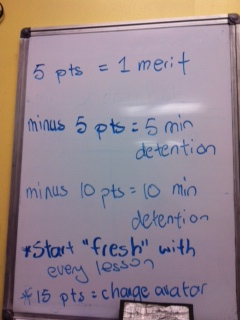 5 pts = 1 merit
minus 5 pts = 5 min
detention
minus 10 pts = 10 min
detention
*Start "fresh" with
every lesson
*15 pts = change avatar